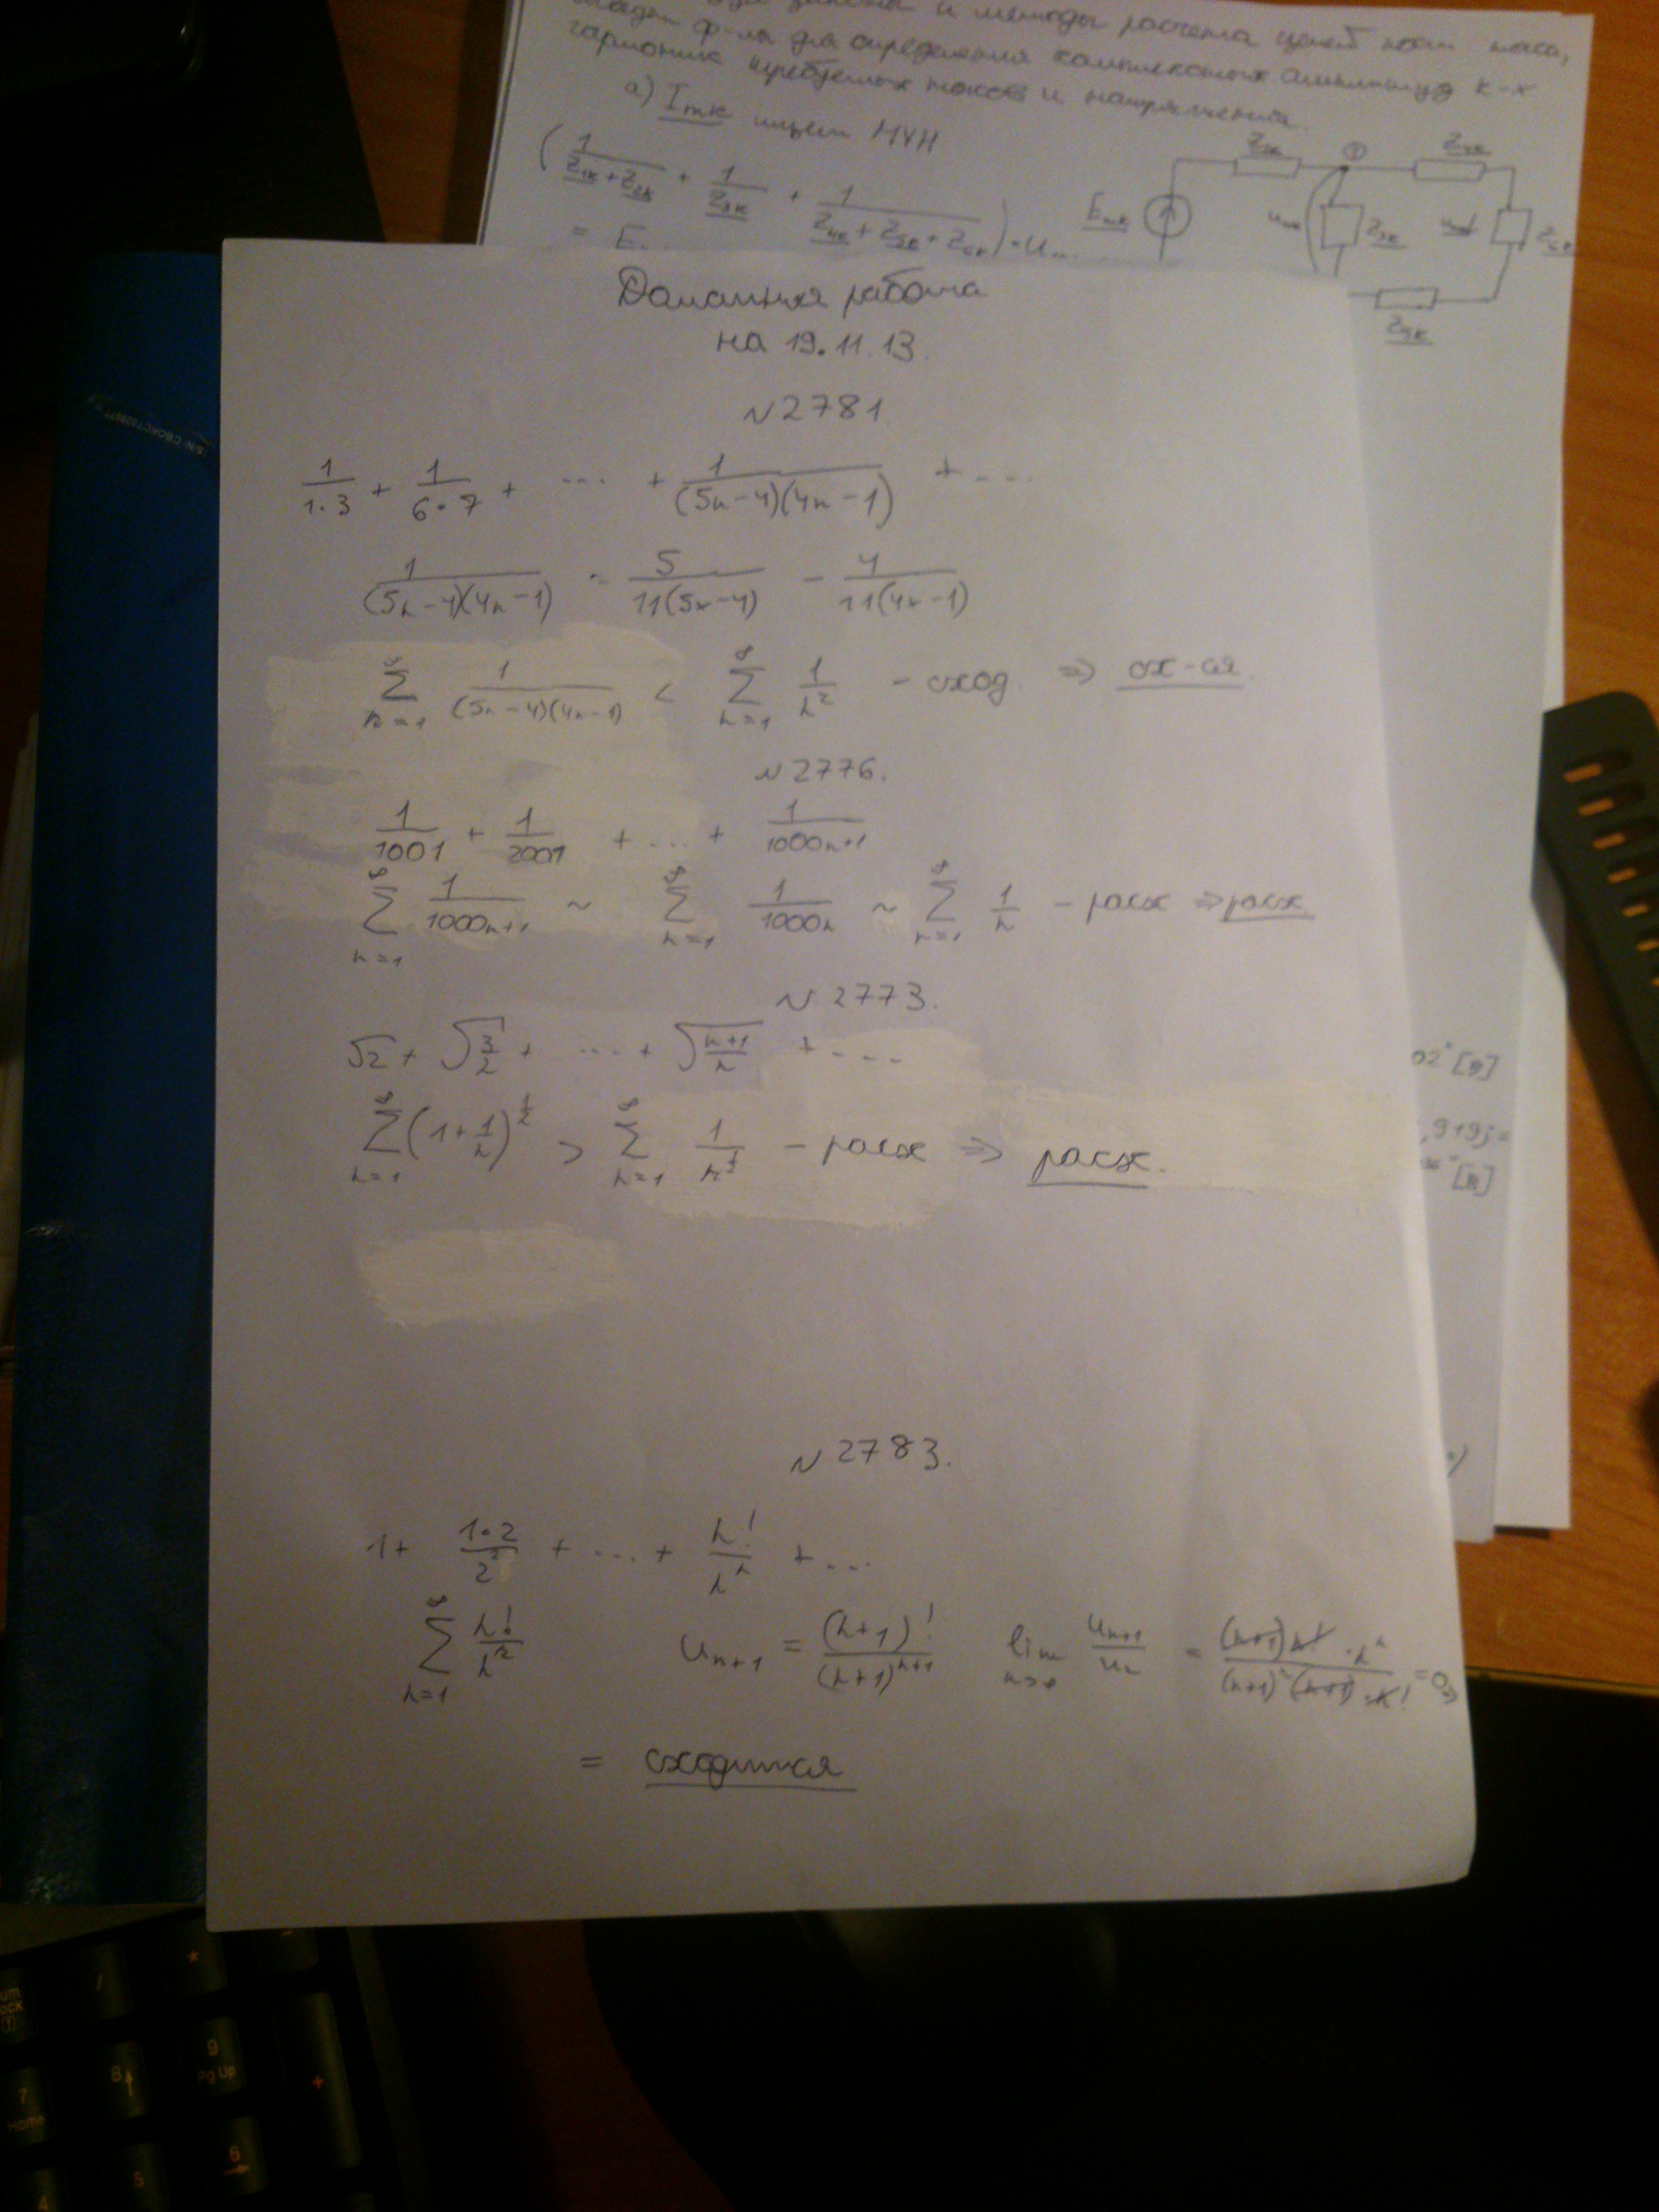 и методы расчета цепей пост. тока,
ф-лы для определения комплексных амплитуд к-х
гармоник требуемых токов и напряжений.
а) Imk ищем МУН
(1/(Z1k+Z2k) + 1/Z3k + 1/(Z4k+Z5k+Z6k))·U
= E
Emk
Z4k
Z3k
Z5k
S/N
Домашняя работа
на 19.11.13.
N2781.
1/(1·3) + 1/(6·7) + ... + 1/((5n-4)(4n-1)) + ...
1/((5n-4)(4n-1)) = 5/(11(5n-4)) - 4/(11(4n-1))
∞∑n=1 1/((5n-4)(4n-1)) < ∞∑n=1 1/n² - сход ⇒ сх-ся.
N2776.
1/1001 + 1/2001 + ... + 1/(1000n+1)
∞∑n=1 1/(1000n+1) ~ ∞∑n=1 1/(1000n) ~ ∞∑n=1 1/n - расх ⇒ расх
N2773.
√2 + √(3/2) + ... + √((n+1)/n) + ...
∞∑n=1 (1+1/n)^(1/2) > ∞∑n=1 1/n^(1/2) - расх ⇒ расх.
02° [В]
,9+9j=
[В]
N2783.
1+ (1·2)/2² + ... + n!/nⁿ + ...
∞∑n=1 n!/nⁿ Un+1 = (n+1)!/(n+1)^(n+1) lim n→∞ Un+1/Un = ((n+1)n!·nⁿ)/((n+1)ⁿ(n+1)·n!) = 0 ⇒
= сходится
/
*
-
7
Home
8
9
Pg Up
+
4
5
6